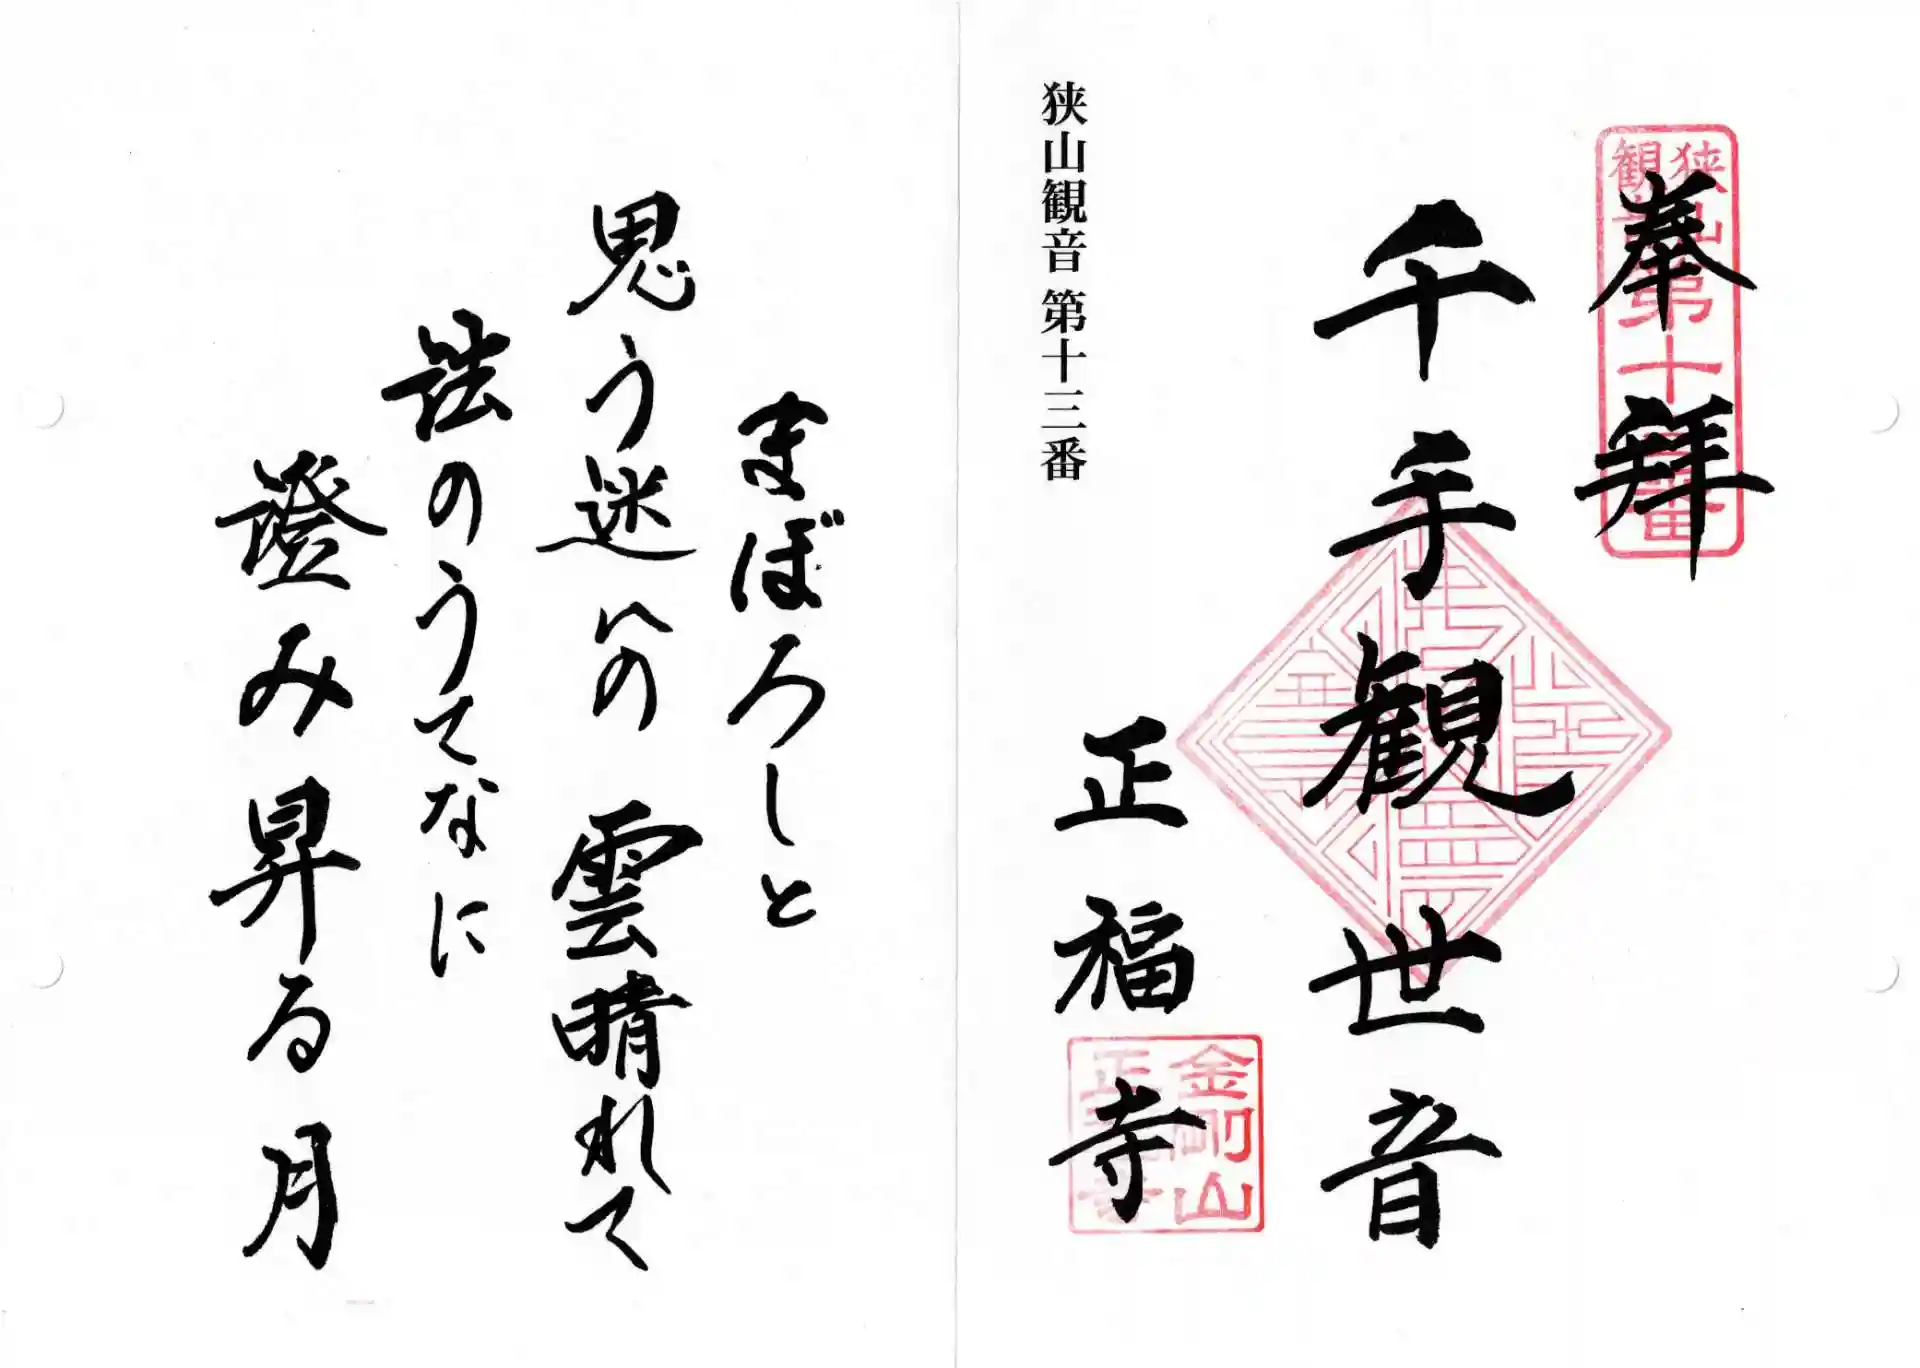 奉拝
狭山観音第十三番
千手観世音
正福寺
金剛山正福寺
狭山観音 第十三番
まぼろしと
思う迷いの雲晴れて
法のうてなに
澄み昇る月